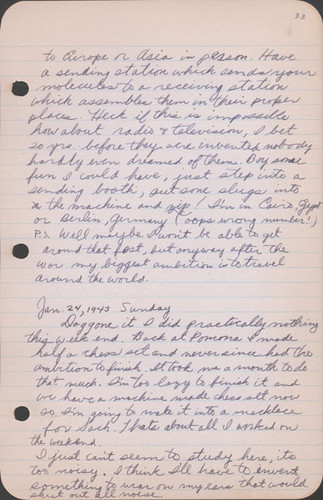 33
to Europe or Asia in person. Have
a sending station which sends your
molecules to a receiving station
which assembles them in their proper
places. Heck if this is impossible
how about radio & television, I bet
50 yrs. before they were invented nobody
hardly even dreamed of them. Boy some
fun I could have, just step into a
sending booth, put some slugs into
the machine and zip! I'm in Cairo, Egypt
or Berlin, Germany (oops wrong number!)
P.S. Well maybe I won't be able to get
around that fast, but anyway after the
war my biggest ambition is to travel
around the world.
Jan. 24, 1943 Sunday
Doggone it I did practically nothing
this week end. Back at Pomona I made
half a chess set and never since had the
ambition to finish. It took me a month to do
that much. I'm too lazy to finish it and
we have a machine made chess set now
so I'm going to make it into a necklace
for Sach. Thats about all I worked on
the weekend.
I just can't seem to study here, its
too noisy. I think I'll have to invent
something to wear on my ears that would
shut out all noise.